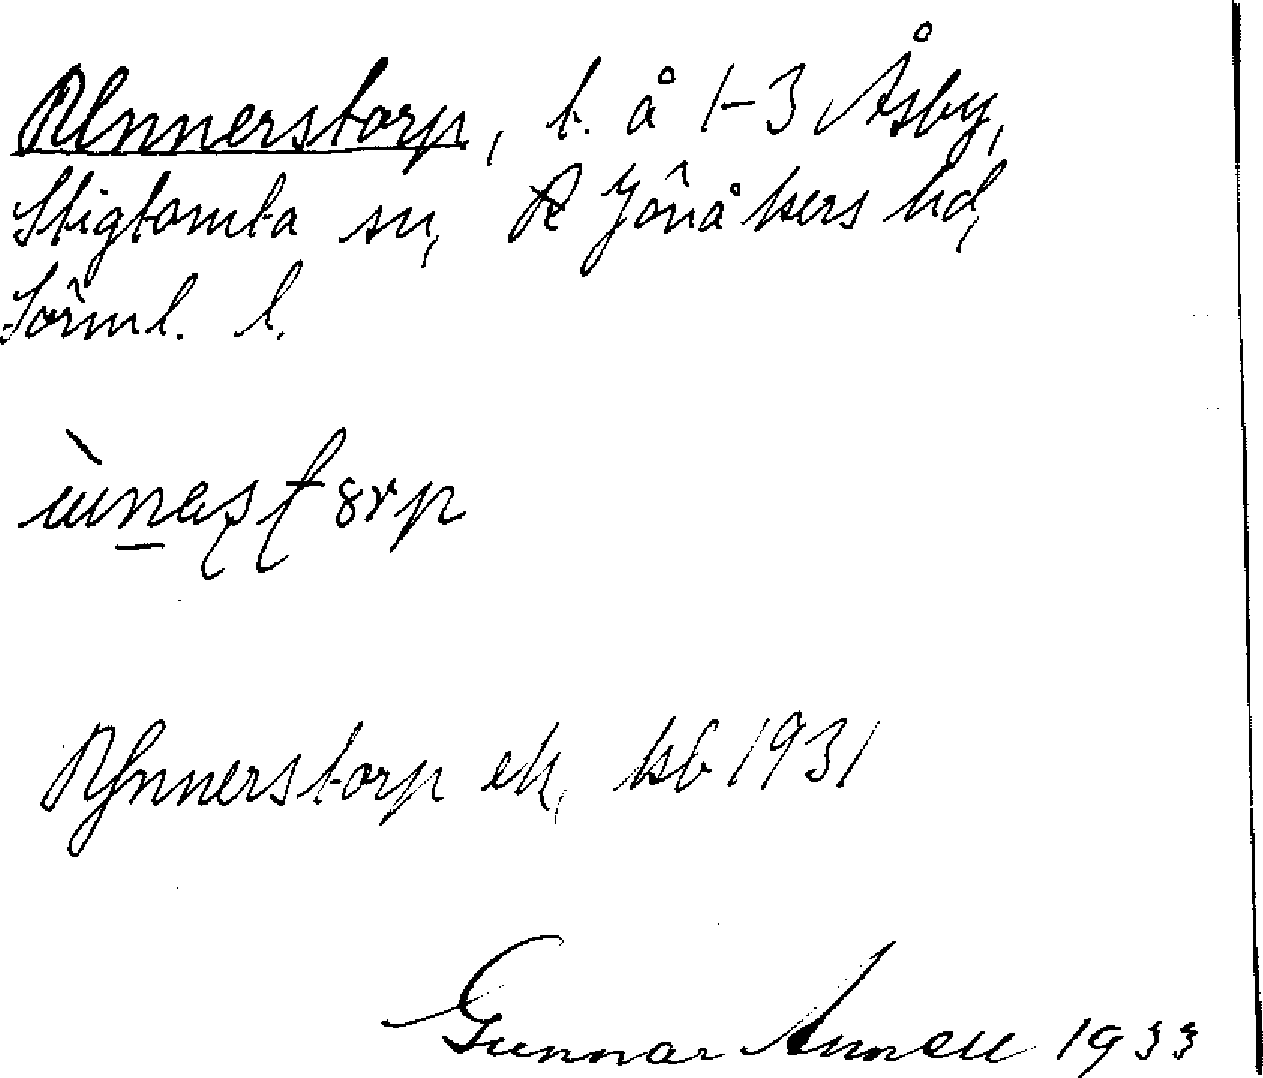 Runnerstorp, t. å 1-3 Åsby,
Stigtomta sn, Jönåkers hd,
Sörml. l.
Rynnerstorp ek, kb 1931
Gunnar Annell 1933